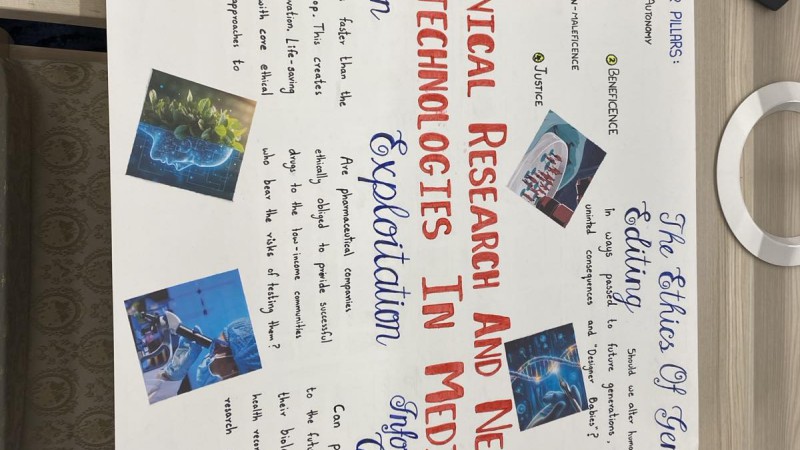 PILLARS:
AUTONOMY
② BENEFICENCE
N-MALEFICENCE
④ JUSTICE
The Ethics Of Gen
Editing
Should we alter huma
In ways passed to future generations,
uninted consequences and "Designer Babies"?
NICAL RESEARCH AND NE
TECHNOLOGIES IN MED
n
faster than the
op. This creates
vation. Life-saving
with core ethical
approaches to
Exploitation
Are pharmaceutical companies
ethically obliged to provide successful
drugs to the low-income communities
who bear the risks of testing them?
Info
Can p
to the futu
their biol
health recor
research